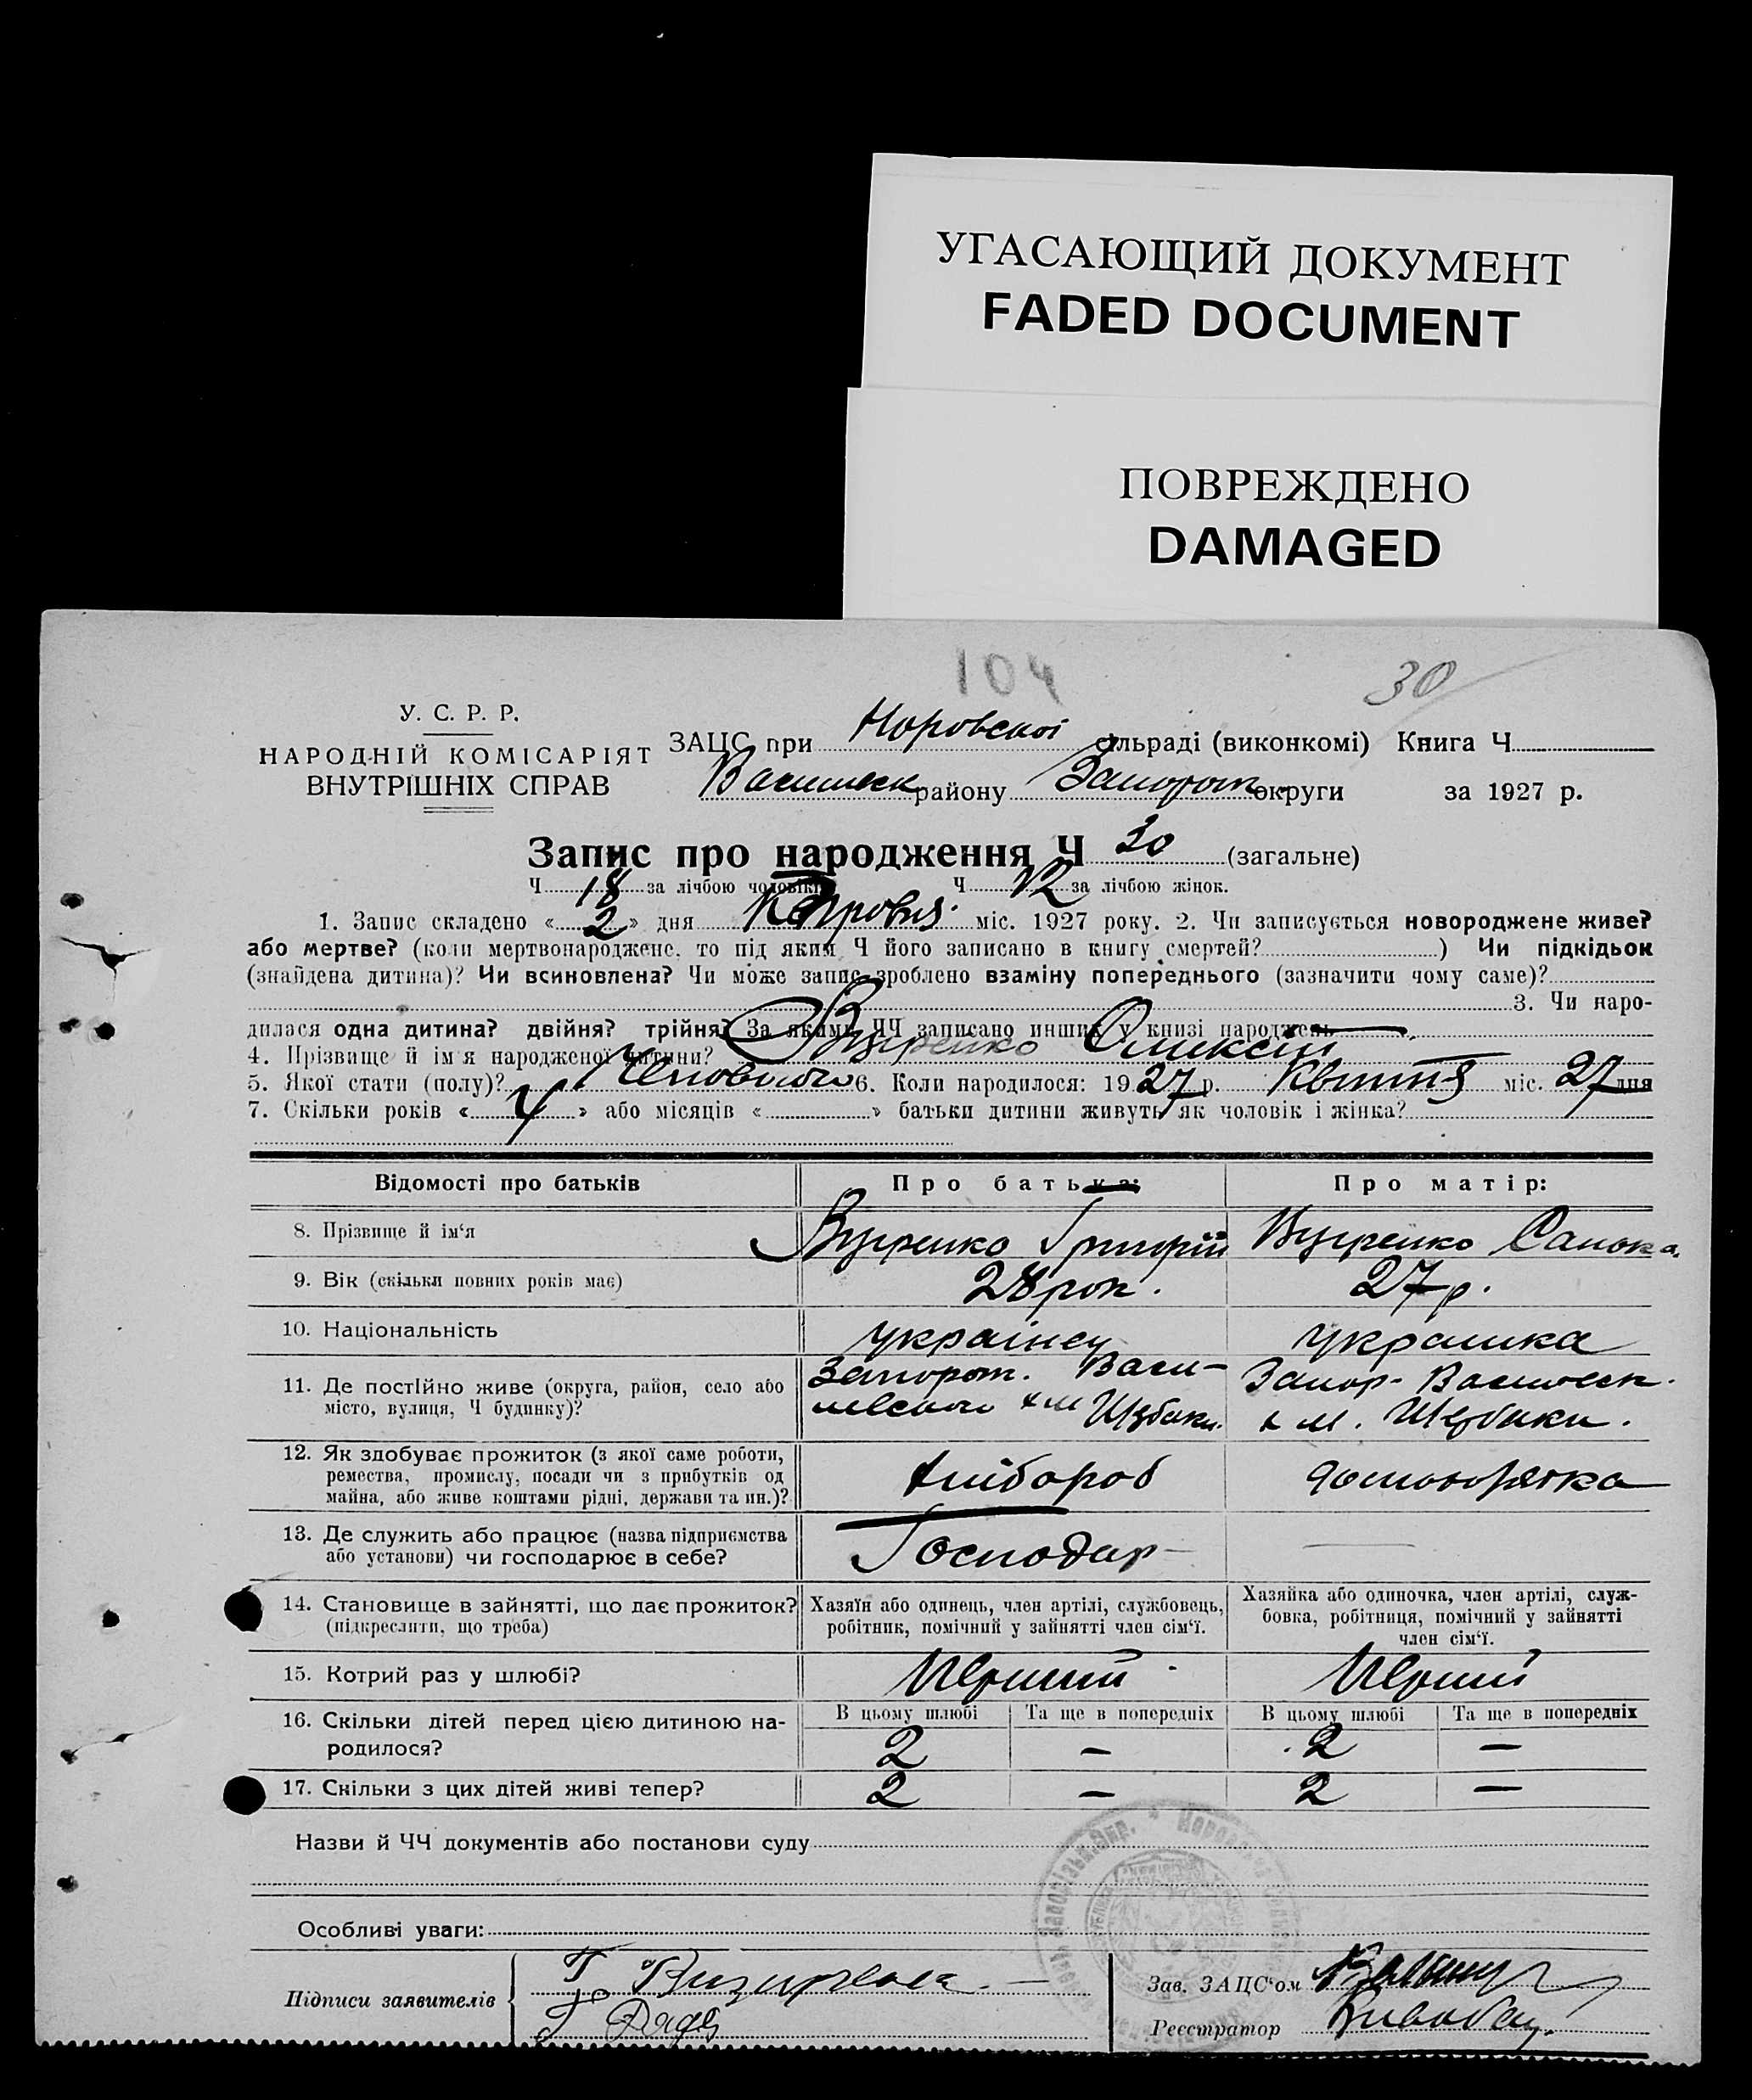 УГАСАЮЩИЙ ДОКУМЕНТ
FADED DOCUMENT
ПОВРЕЖДЕНО
DAMAGED
104
30
У. С. Р. Р.
НАРОДНІЙ КОМІСАРІЯТ
ВНУТРІШНІХ СПРАВ
ЗАЦС при сільраді (виконкомі) Книга Ч
району округи за 1927 р.
Запис про народження Ч 30 (загальне)
Ч 18 за лічбою чоловіків Ч 12 за лічбою жінок.
1. Запис складено « 2 » дня міс. 1927 року. 2. Чи записується новороджене живе?
або мертве? (коли мертвонароджене, то під яким Ч його записано в книгу смертей? ) Чи підкідьок
(знайдена дитина)? Чи всиновлена? Чи може запис зроблено взаміну попереднього (зазначити чому саме)?
3. Чи наро-
дилася одна дитина? двійня? трійня? За якими ЧЧ записано инших у книзі народжень
4. Прізвище й ім'я народженої дитини? Олексій
5. Якої стати (полу)? 6. Коли народилося: 1927 р. квітня міс. 27 дня
7. Скільки років « 4 » або місяців « » батьки дитини живуть як чоловік і жінка?
Відомості про батьків Про батька: Про матір:
8. Прізвище й ім'я Григорій
9. Вік (скільки повних років має) 28 рок. 27 р.
10. Національність українец украинка
11. Де постійно живе (округа, район, село або
місто, вулиця, Ч будинку)?
Запорож. Васи-
Щербаки.
Запор. Васильевск.
х м. Щербаки.
12. Як здобуває прожиток (з якої саме роботи,
ремества, промислу, посади чи з прибутків од
майна, або живе коштами рідні, держави та ин.)?
хлібороб
13. Де служить або працює (назва підприємства
або установи) чи господарює в себе?
Господар
14. Становище в зайнятті, що дає прожиток?
(підкреслити, що треба)
Хазяїн або одинець, член артілі, службовець,
робітник, помічний у зайнятті член сім'ї.
Хазяйка або одиночка, член артілі, служ-
бовка, робітниця, помічний у зайнятті
член сім'ї.
15. Котрий раз у шлюбі? Перший Перший
16. Скільки дітей перед цією дитиною на-
родилося?
В цьому шлюбі Та ще в попередніх В цьому шлюбі Та ще в попередніх
2 — 2 —
17. Скільки з цих дітей живі тепер? 2 — 2 —
Назви й ЧЧ документів або постанови суду
Особливі уваги:
Підписи заявителів
Зав. ЗАЦС'ом
Реєстратор